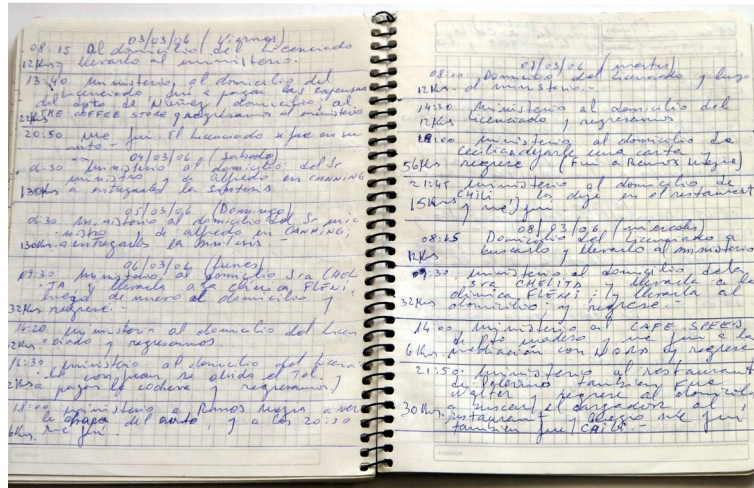 03/03/06 (Viernes)
08:15 Al domicilio del Licenciado
12Kms y llevarlo al ministerio.
13:40 ministerio al domicilio del
Licenciado fui a pagar las expensas
del dpto de Nuñez / domicilio al
22Kms THE COFFEE STORE y regresamos al ministerio
20:50 me fui. El Licenciado sigue en su
auto -
04/03/06 (Sabado)
06:30 ministerio al domicilio del Sr
ministro y de Alfredo en CANNING
130Kms a entregarles la sintesis
05/03/06 (Domingo)
06:30 ministerio al domicilio del Sr minis
istro y de alfredo en CANNING,
130Kms a entregarles la sintesis. -
06/03/06 (Lunes)
09:30 ministerio al domicilio Sra CHEL
ITA, y llevarla a la clinica FLENI,
luego de nuevo al domicilio y
32Kms regrese -
14:20 ministerio al domicilio del Licen
12Kms ciado y regresamos
16:30 ministerio al domicilio del Licencia
do con se olvido el Tel.
a pagar la cochera y regresamos)
18:00 ministerio a Ramos Mejia a ver
la chapa del auto, y a las 20:30
me fui.
07/03/06 (martes)
08:00 Domicilio del Licenciado y luego
12Kms. al ministerio. -
14:30 ministerio al domicilio del
12Kms Licenciado y regresamos
18:00 ministerio al domicilio de
Cecilia dejarle una carta
56Kms regrese (Fui a Ramos Mejia)
21:45 ministerio al domicilio de
CHiLi los dejé en el restaurant
15Kms y me fui
08/03/06 (miercoles)
08:15 Domicilio del Licenciado a
12Kms buscarlo y llevarlo al ministerio
09:30 ministerio al domicilio de la
Sra CHELITA y llevarla a la
clinica FLENI; y llevarla al
32Kms domicilio y regrese -
14:00 ministerio al CAFE SPEED
de Pto madero y me fui a la
6Kms. mediacion con NORA y regrese
21:50 ministerio al restaurant
de Palermo tambien fue
Walter, regrese al domicilio
30Kms. a buscar el cargador al
restaurant y luego me fui
tambien fue CHiLi. -